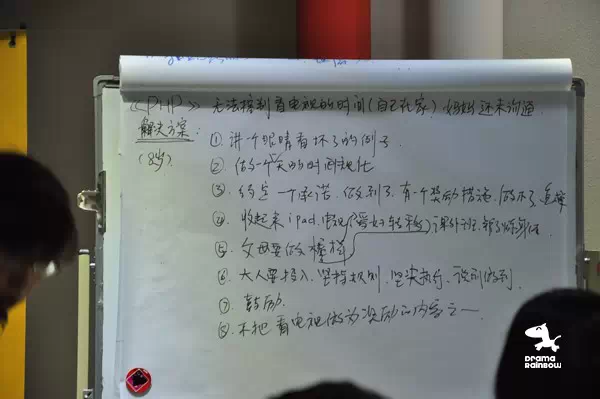 《PHP》 无法控制看电视的时间(自己在家) 妈妈还未沟通
解决方案
(8岁)
① 讲一个眼睛看坏了的例子
② 做一个 的时间规化
③ 约定一个承诺。做到了,有一个奖励措施,做不了
④ 收起来 ipad、电视(爱好转移)课外班
⑤ 父母要做榜样
⑥ 大人要投入、坚持规则、坚决执行、说到做到。
⑦ 鼓励。
⑧ 不把看电视做为奖励的内容之一
Drama
RAINBOW